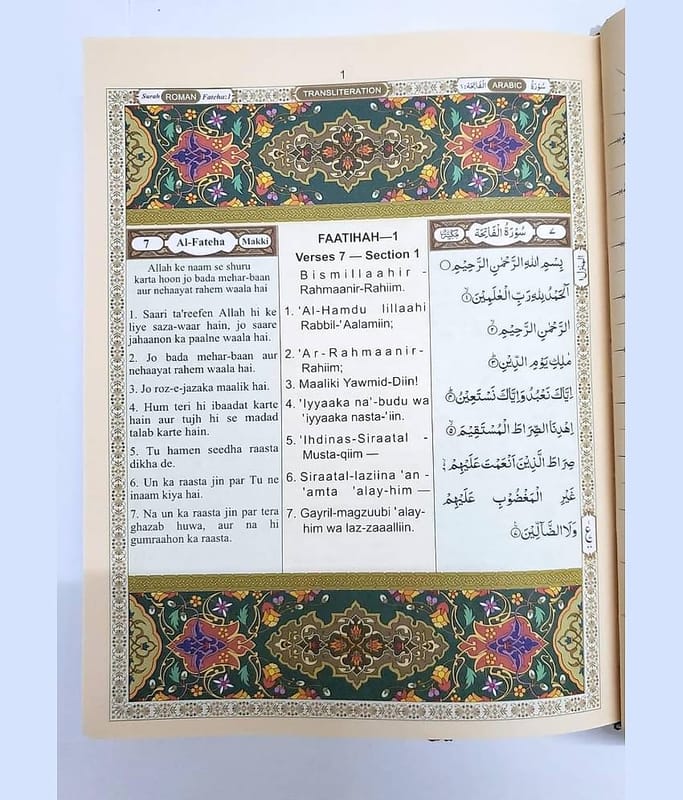 1
Surah ROMAN Fateha:1
TRANSLITERATION
الْفَاتِحَة ١ ARABIC سُوْرَةُ
7 Al-Fateha Makki
Allah ke naam se shuru
karta hoon jo bada mehar-baan
aur nehaayat rahem waala hai
1. Saari ta'reefen Allah hi ke
liye saza-waar hain, jo saare
jahaanon ka paalne waala hai.
2. Jo bada mehar-baan aur
nehaayat rahem waala hai.
3. Jo roz-e-jazaka maalik hai.
4. Hum teri hi ibaadat karte
hain aur tujh hi se madad
talab karte hain.
5. Tu hamen seedha raasta
dikha de.
6. Un ka raasta jin par Tu ne
inaam kiya hai.
7. Na un ka raasta jin par tera
ghazab huwa, aur na hi
gumraahon ka raasta.
FAATIHAH—1
Verses 7 — Section 1
Bismillaahir -
Rahmaanir-Rahiim.
1. 'Al-Hamdu lillaahi
Rabbil-'Aalamiin;
2. 'Ar-Rahmaanir-
Rahiim;
3. Maaliki Yawmid-Diin!
4. 'Iyyaaka na'-budu wa
'iyyaaka nasta-'iin.
5. 'Ihdinas-Siraatal -
Musta-qiim —
6. Siraatal-laziina 'an -
'amta 'alay-him —
7. Gayril-magzuubi 'alay-
him wa laz-zaaalliin.
٧ سُوْرَةُ الْفَاتِحَة مَكِّيَّة
بِسْمِ اللهِ الرَّحْمٰنِ الرَّحِيْمِ
اَلْحَمْدُ لِلّٰهِ رَبِّ الْعٰلَمِيْنَ ۱
الرَّحْمٰنِ الرَّحِيْمِ ۲
مٰلِكِ يَوْمِ الدِّيْنِ ۳
اِيَّاكَ نَعْبُدُ وَاِيَّاكَ نَسْتَعِيْنُ ۴
اِهْدِنَا الصِّرَاطَ الْمُسْتَقِيْمَ ۵
صِرَاطَ الَّذِيْنَ اَنْعَمْتَ عَلَيْهِمْ ۶
غَيْرِ الْمَغْضُوْبِ عَلَيْهِمْ
وَلَا الضَّآلِّيْنَ
ع